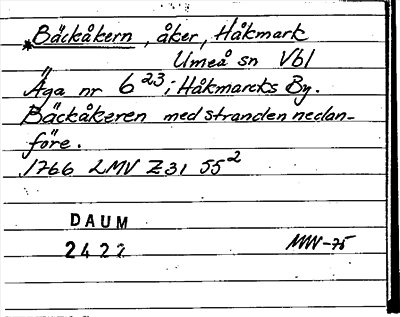 *Bäckåkern, åker, Håkmark
Umeå sn Vbl
Äga nr 6²³ i Håkmarcks By.
Bäckåkeren med stranden nedan-
före.
1766 LMV Z31 55²
DAUM
2422
MW-75